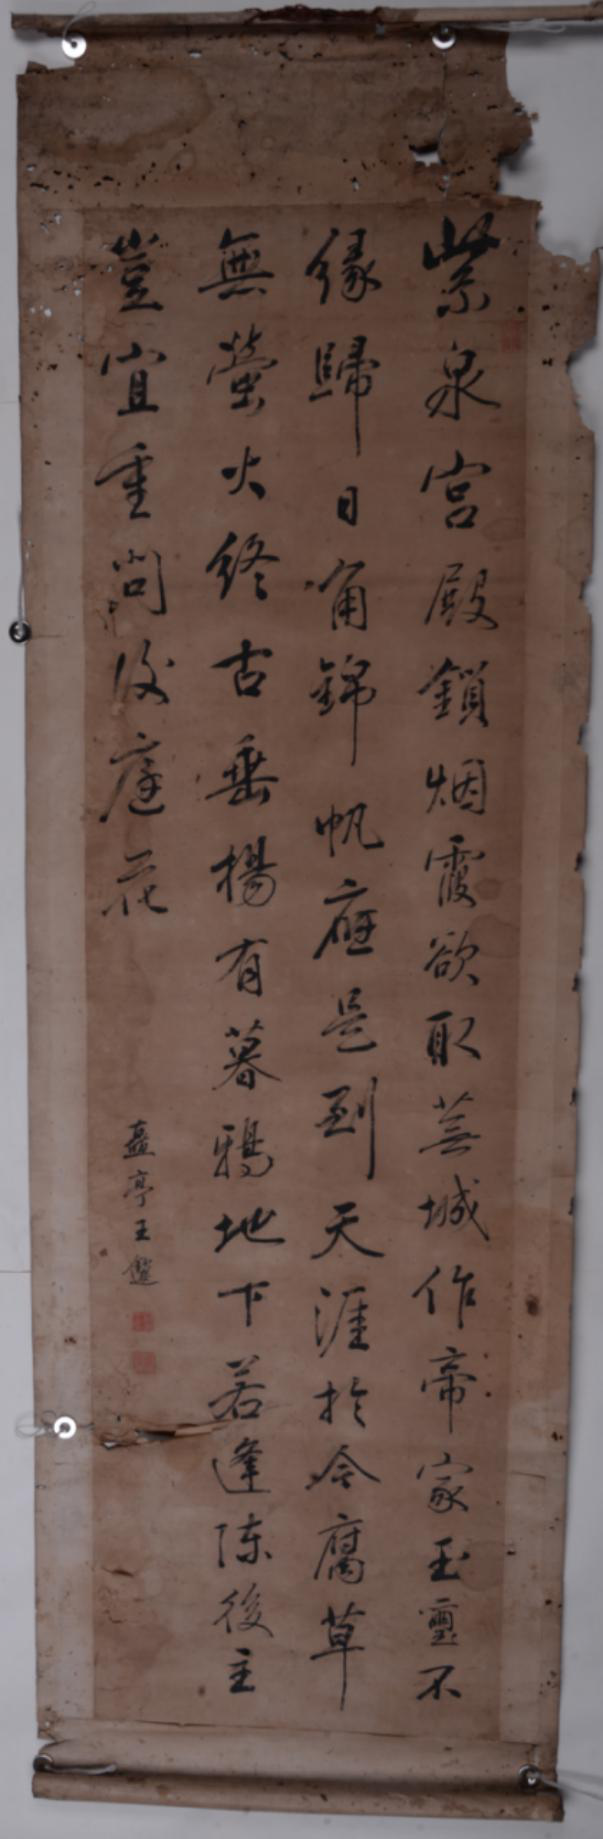 紫泉宮殿鎖烟霞欲取蕪城作帝家玉璽不
緣歸日角錦帆應是到天涯於今腐草
無螢火終古垂楊有暮鴉地下若逢陳後主
豈宜重問後庭花
王